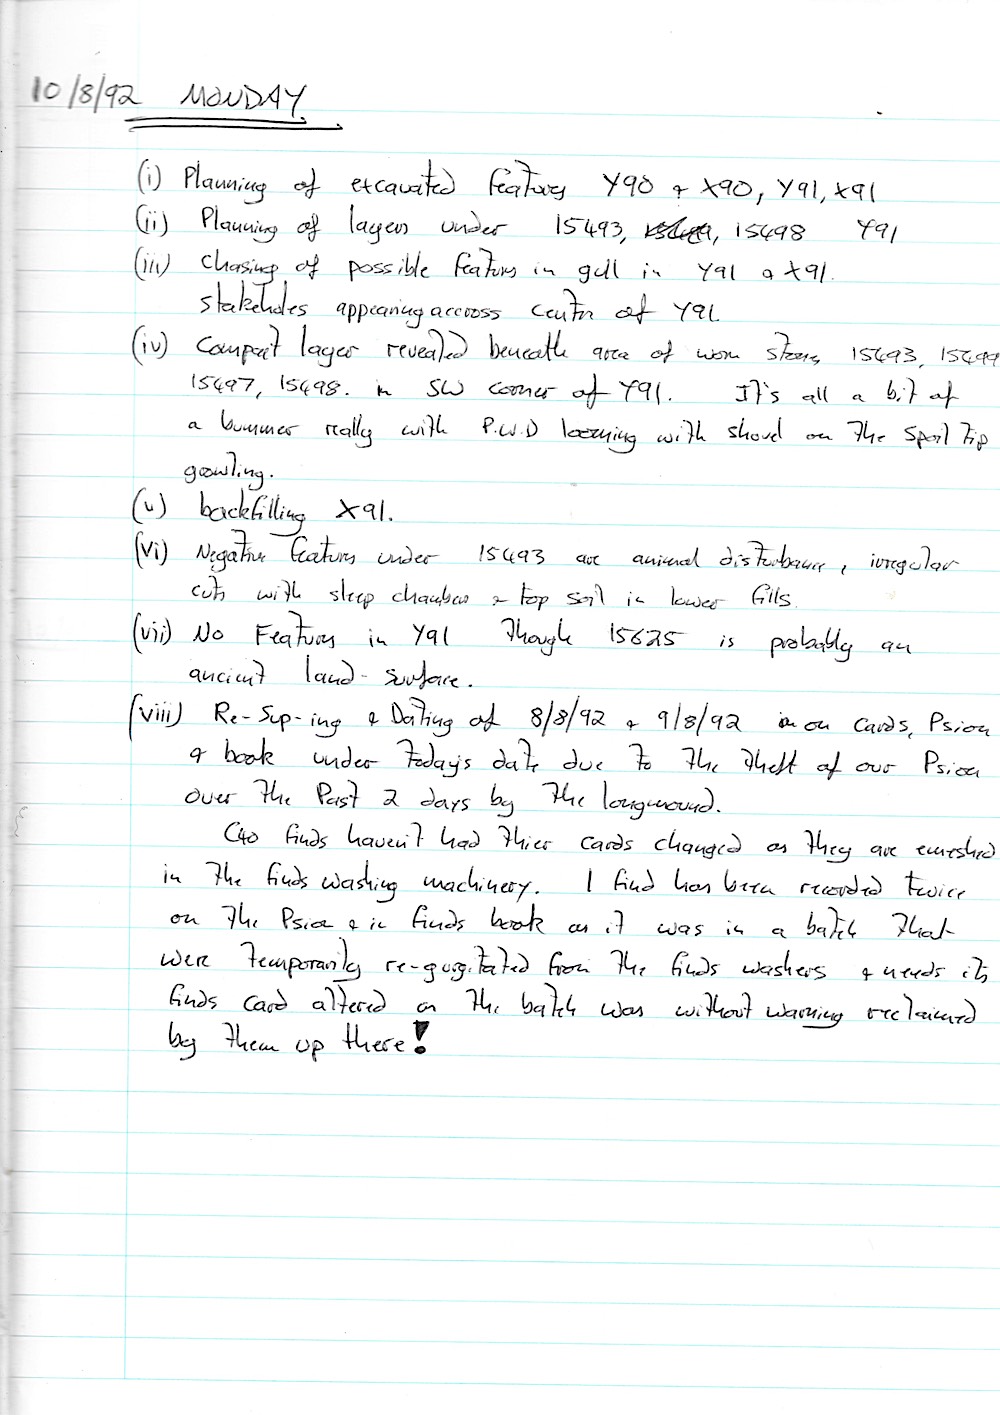 10/8/92 MONDAY
(i) Planning of excavated features Y90 + X90, Y91, X91
(ii) Planning of layers under 15493, 15498 Y91
(iii) Chasing of possible features in gull in Y91 & X91.
stakeholes appearing accross centre of Y91
(iv) Compact layer revealed beneath area of worn stones 15493, 15499
15497, 15498. in SW corner of Y91. It's all a bit of
a bummer really with P.W.D looming with shovel on the spoil tip
growling.
(v) backfilling X91.
(vi) Negative features under 15493 are animal disturbance, irregular
cuts with sleep chamber & top soil in lower fills.
(vii) No Features in Y91 Though 15625 is probably an
ancient land-surface.
(viii) Re-Sup-ing & Dating of 8/8/92 & 9/8/92 on cards, Psion
& book under today's date due to the theft of our Psion
over the Past 2 days by the longmound.
C40 finds haven't had thier cards changed as they are enmeshed
in the finds washing machinery. 1 find has been recorded twice
on the Psion & in finds book as it was in a batch that
were temporarily re-gurgitated from the finds washers & needs its
finds card altered as the batch was without warning reclaimed
by them up there!